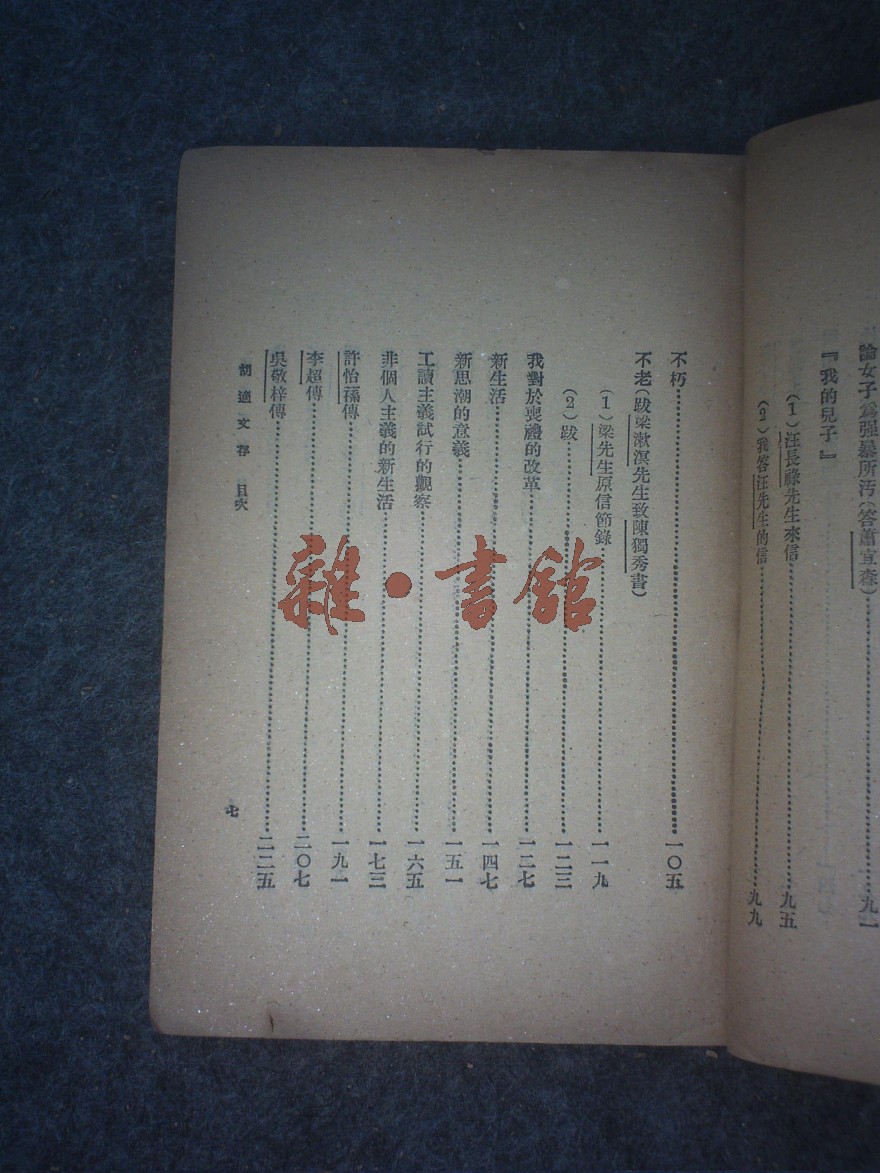 論女子爲强暴所汚(答蕭宜森)……九一
『我的兒子』
(1)汪長祿先生來信……九五
(2)我答汪先生的信……九九
不朽……一〇五
不老(跋梁漱溟先生致陳獨秀書)
(1)梁先生原信節錄……一一九
(2)跋……一二三
我對於喪禮的改革……一二七
新生活……一四七
新思潮的意義……一五一
工讀主義試行的觀察……一六五
非個人主義的新生活……一七三
許怡蓀傳……一九一
李超傳……二〇七
吳敬梓傳……二二五
胡適文存 目次
七
雜·書館